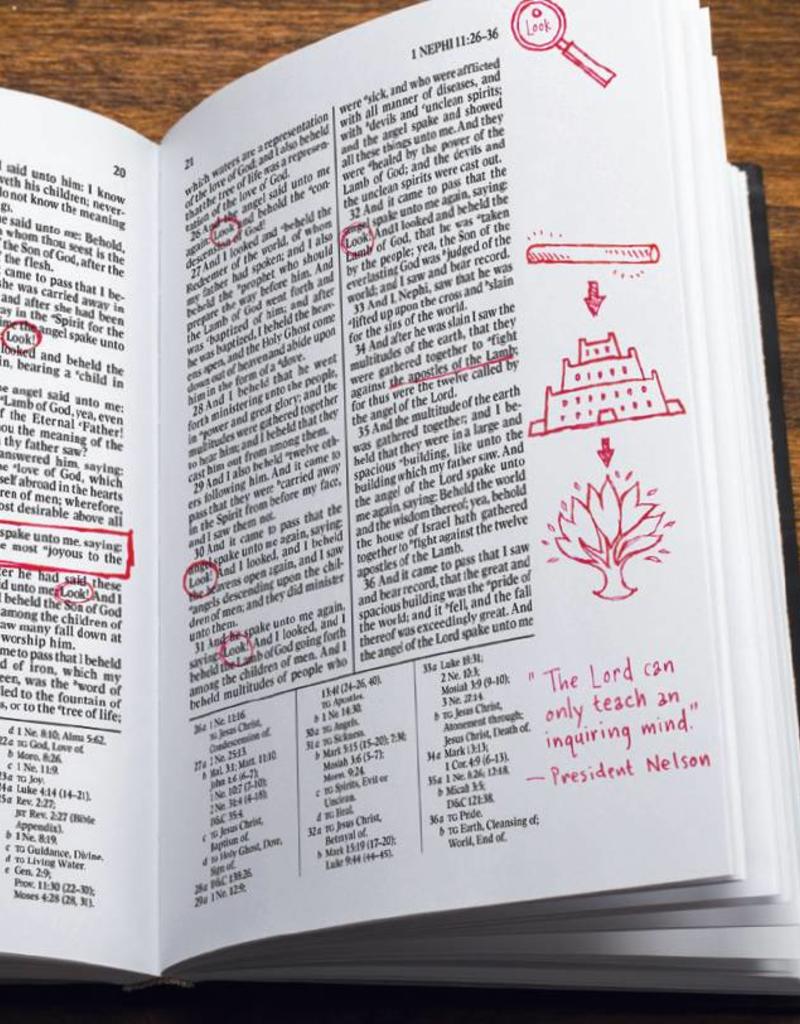 20
l said unto him: I know
veth his children; never-
do not know the meaning
gs.
he said unto me: Behold,
whom thou seest is the
f the Son of God, after the
f the flesh.
came to pass that I be-
she was carried away in
and after she had been
ay in the ᵃSpirit for the
ime the angel spake unto
Look!
looked and beheld the
in, bearing a ᵃchild in
he angel said unto me:
ᵃLamb of God, yea, even
f the Eternal ᵇFather!
ou the meaning of the
thy father saw?
answered him, saying:
he ᵃlove of God, which
self abroad in the hearts
ren of men; wherefore,
ost desirable above all
spake unto me, saying:
e most ᵃjoyous to the
ter he had said these
id unto me: Look! And I
I beheld the Son of God
among the children of
aw many fall down at
worship him.
me to pass that I beheld
d of iron, which my
een, was the ᵃword of
led to the fountain of
s, or to the ᵉtree of life;
d 1 Ne. 8:10; Alma 5:62.
22a TG God, Love of.
b Moro. 8:26.
c 1 Ne. 11:9.
23a TG Joy.
24a Luke 4:14 (14–21).
25a Rev. 2:27;
JST Rev. 2:27 (Bible
Appendix).
b 1 Ne. 8:19.
c TG Guidance, Divine.
d TG Living Water.
e Gen. 2:9;
Prov. 11:30 (22–30);
Moses 4:28 (28, 31).
21
1 NEPHI 11:26–36
Look
which waters are a representation
of the love of God; and I also beheld
that the tree of life was a represen-
tation of the love of God.
26 And the angel said unto me
again: Look and behold the ᵃcon-
descension of God!
27 And I looked and ᵃbeheld the
Redeemer of the world, of whom
my father had spoken; and I also
beheld the ᵇprophet who should
prepare the way before him. And
the Lamb of God went forth and
was ᶜbaptized of him; and after
he was baptized, I beheld the heav-
ens open, and the Holy Ghost come
down out of heaven and abide upon
him in the form of a ᵈdove.
28 And I beheld that he went
forth ministering unto the people,
in ᵃpower and great glory; and the
multitudes were gathered together
to hear him; and I beheld that they
cast him out from among them.
29 And I also beheld ᵃtwelve oth-
ers following him. And it came to
pass that they were ᵇcarried away
in the Spirit from before my face,
and I saw them not.
30 And it came to pass that the
angel spake unto me again, saying:
Look! And I looked, and I beheld
the heavens open again, and I saw
ᵃangels descending upon the chil-
dren of men; and they did minister
unto them.
31 And he spake unto me again,
saying: Look! And I looked, and I
beheld the Lamb of God going forth
among the children of men. And I
beheld multitudes of people who
were ᵃsick, and who were afflicted
with all manner of diseases, and
with ᵇdevils and ᶜunclean spirits;
and the angel spake and showed
all these things unto me. And they
were ᵈhealed by the power of the
Lamb of God; and the devils and
the unclean spirits were cast out.
32 And it came to pass that the
angel spake unto me again, saying:
Look! And I looked and beheld the
Lamb of God, that he was ᵃtaken
by the people; yea, the Son of the
everlasting God was ᵇjudged of the
world; and I saw and bear record.
33 And I, Nephi, saw that he was
ᵃlifted up upon the cross and ᵇslain
for the sins of the world.
34 And after he was slain I saw the
multitudes of the earth, that they
were gathered together to ᵃfight
against the apostles of the Lamb;
for thus were the twelve called by
the angel of the Lord.
35 And the multitude of the earth
was gathered together; and I be-
held that they were in a large and
spacious ᵃbuilding, like unto the
building which my father saw. And
the angel of the Lord spake unto
me again, saying: Behold the world
and the wisdom thereof; yea, behold
the house of Israel hath gathered
together to ᵇfight against the twelve
apostles of the Lamb.
36 And it came to pass that I saw
and bear record, that the great and
spacious building was the ᵃpride of
the world; and it ᵇfell, and the fall
thereof was exceedingly great. And
the angel of the Lord spake unto me
26a 1 Ne. 11:16.
TG Jesus Christ,
Condescension of.
27a 1 Ne. 25:13.
b Mal. 3:1; Matt. 11:10;
John 1:6 (6–7);
1 Ne. 10:7 (7–10);
2 Ne. 31:4 (4–18);
D&C 35:4.
c TG Jesus Christ,
Baptism of.
d TG Holy Ghost, Dove,
Sign of.
28a D&C 138:26.
29a 1 Ne. 12:9;
13:41 (24–26, 40).
TG Apostles.
b 1 Ne. 14:30.
30a TG Angels.
31a TG Sickness.
b Mark 5:15 (15–20); 7:30;
Mosiah 3:6 (5–7);
Morm. 9:24.
c TG Spirits, Evil or
Unclean.
d TG Heal.
32a TG Jesus Christ,
Betrayal of.
b Mark 15:19 (17–20);
Luke 9:44 (44–45).
33a Luke 18:31;
2 Ne. 10:3;
Mosiah 3:9 (9–10);
3 Ne. 27:14.
b TG Jesus Christ,
Atonement through;
Jesus Christ, Death of.
34a Mark 13:13;
1 Cor. 4:9 (6–13).
35a 1 Ne. 8:26; 12:18.
b Micah 3:5;
D&C 121:38.
36a TG Pride.
b TG Earth, Cleansing of;
World, End of.
"The Lord can
only teach an
inquiring mind."
— President Nelson